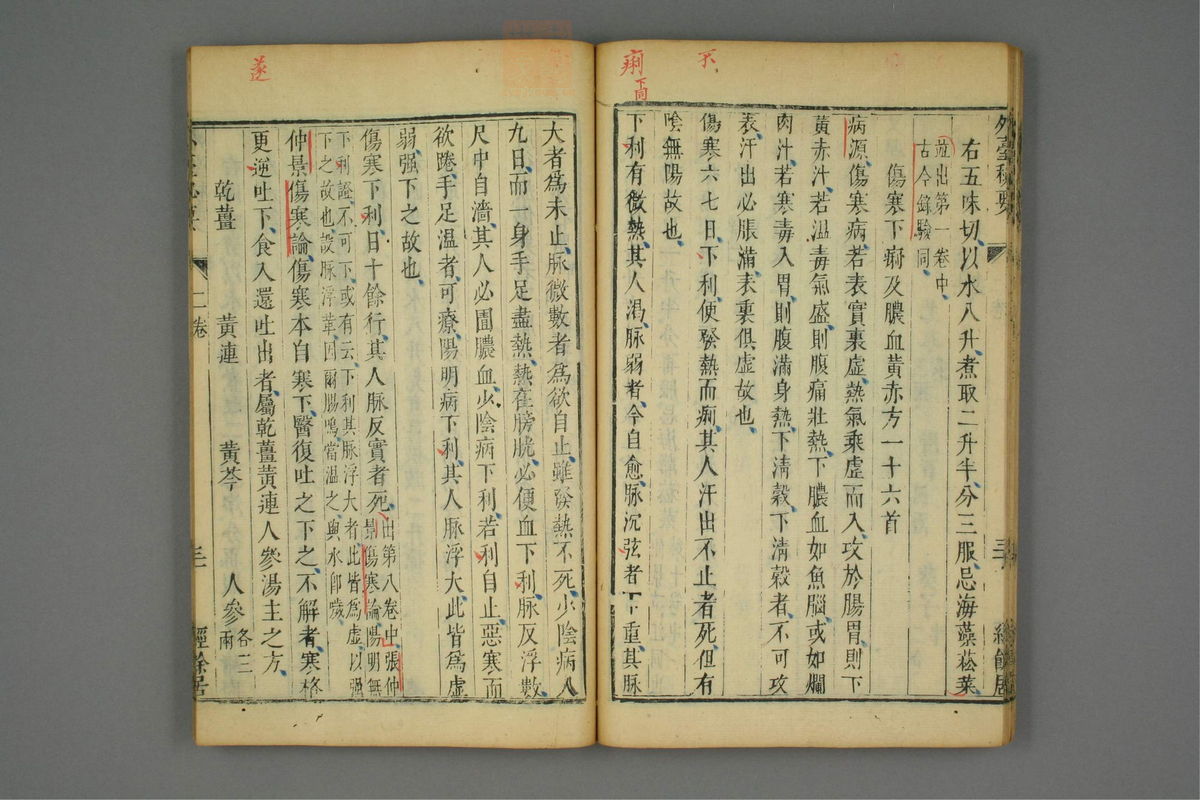 不
痢
下同
外臺秘要
右五味切以水八升煮取二升半分三服忌海藻菘菜
並出第一卷中
古今錄驗同
傷寒下痢及膿血黃赤方一十六首
病源傷寒病若表實裏虛熱氣乘虛而入攻於腸胃則下
黃赤汁若溫毒氣盛則腹痛壯熱下膿血如魚腦或如爛
肉汁若寒毒入胃則腹滿身熱下清穀下清穀者不可攻
表汗出必脹滿表裏俱虛故也
傷寒六七日下利便發熱而痢其人汗出不止者死但有
陰無陽故也
下利有微熱其人渴脉弱者今自愈脉沉弦者下重其脉
經餘居
遂
大者爲未止脉微數者爲欲自止雖發熱不死少陰病八
九日而一身手足盡熱熱在膀胱必便血下利脉反浮數
尺中自濇其人必圊膿血少陰病下利若利自止惡寒而
欲踡手足溫者可療陽明病下利其人脉浮大此皆爲虛
弱强下之故也
傷寒下利日十餘行其人脉反實者死
出第八卷中張仲
景傷寒論陽明無
下利證不可下或有云下利其脉浮大者此皆爲虛以强
下之故也設脉浮革因爾腸鳴當溫之與水卽噦
仲景傷寒論傷寒本自寒下醫復吐之下之不解者寒格
更逆吐下食入還吐出者屬乾薑黃連人參湯主之方
乾薑 黃連 黃芩 人參各三兩
二卷
三十一
經餘居